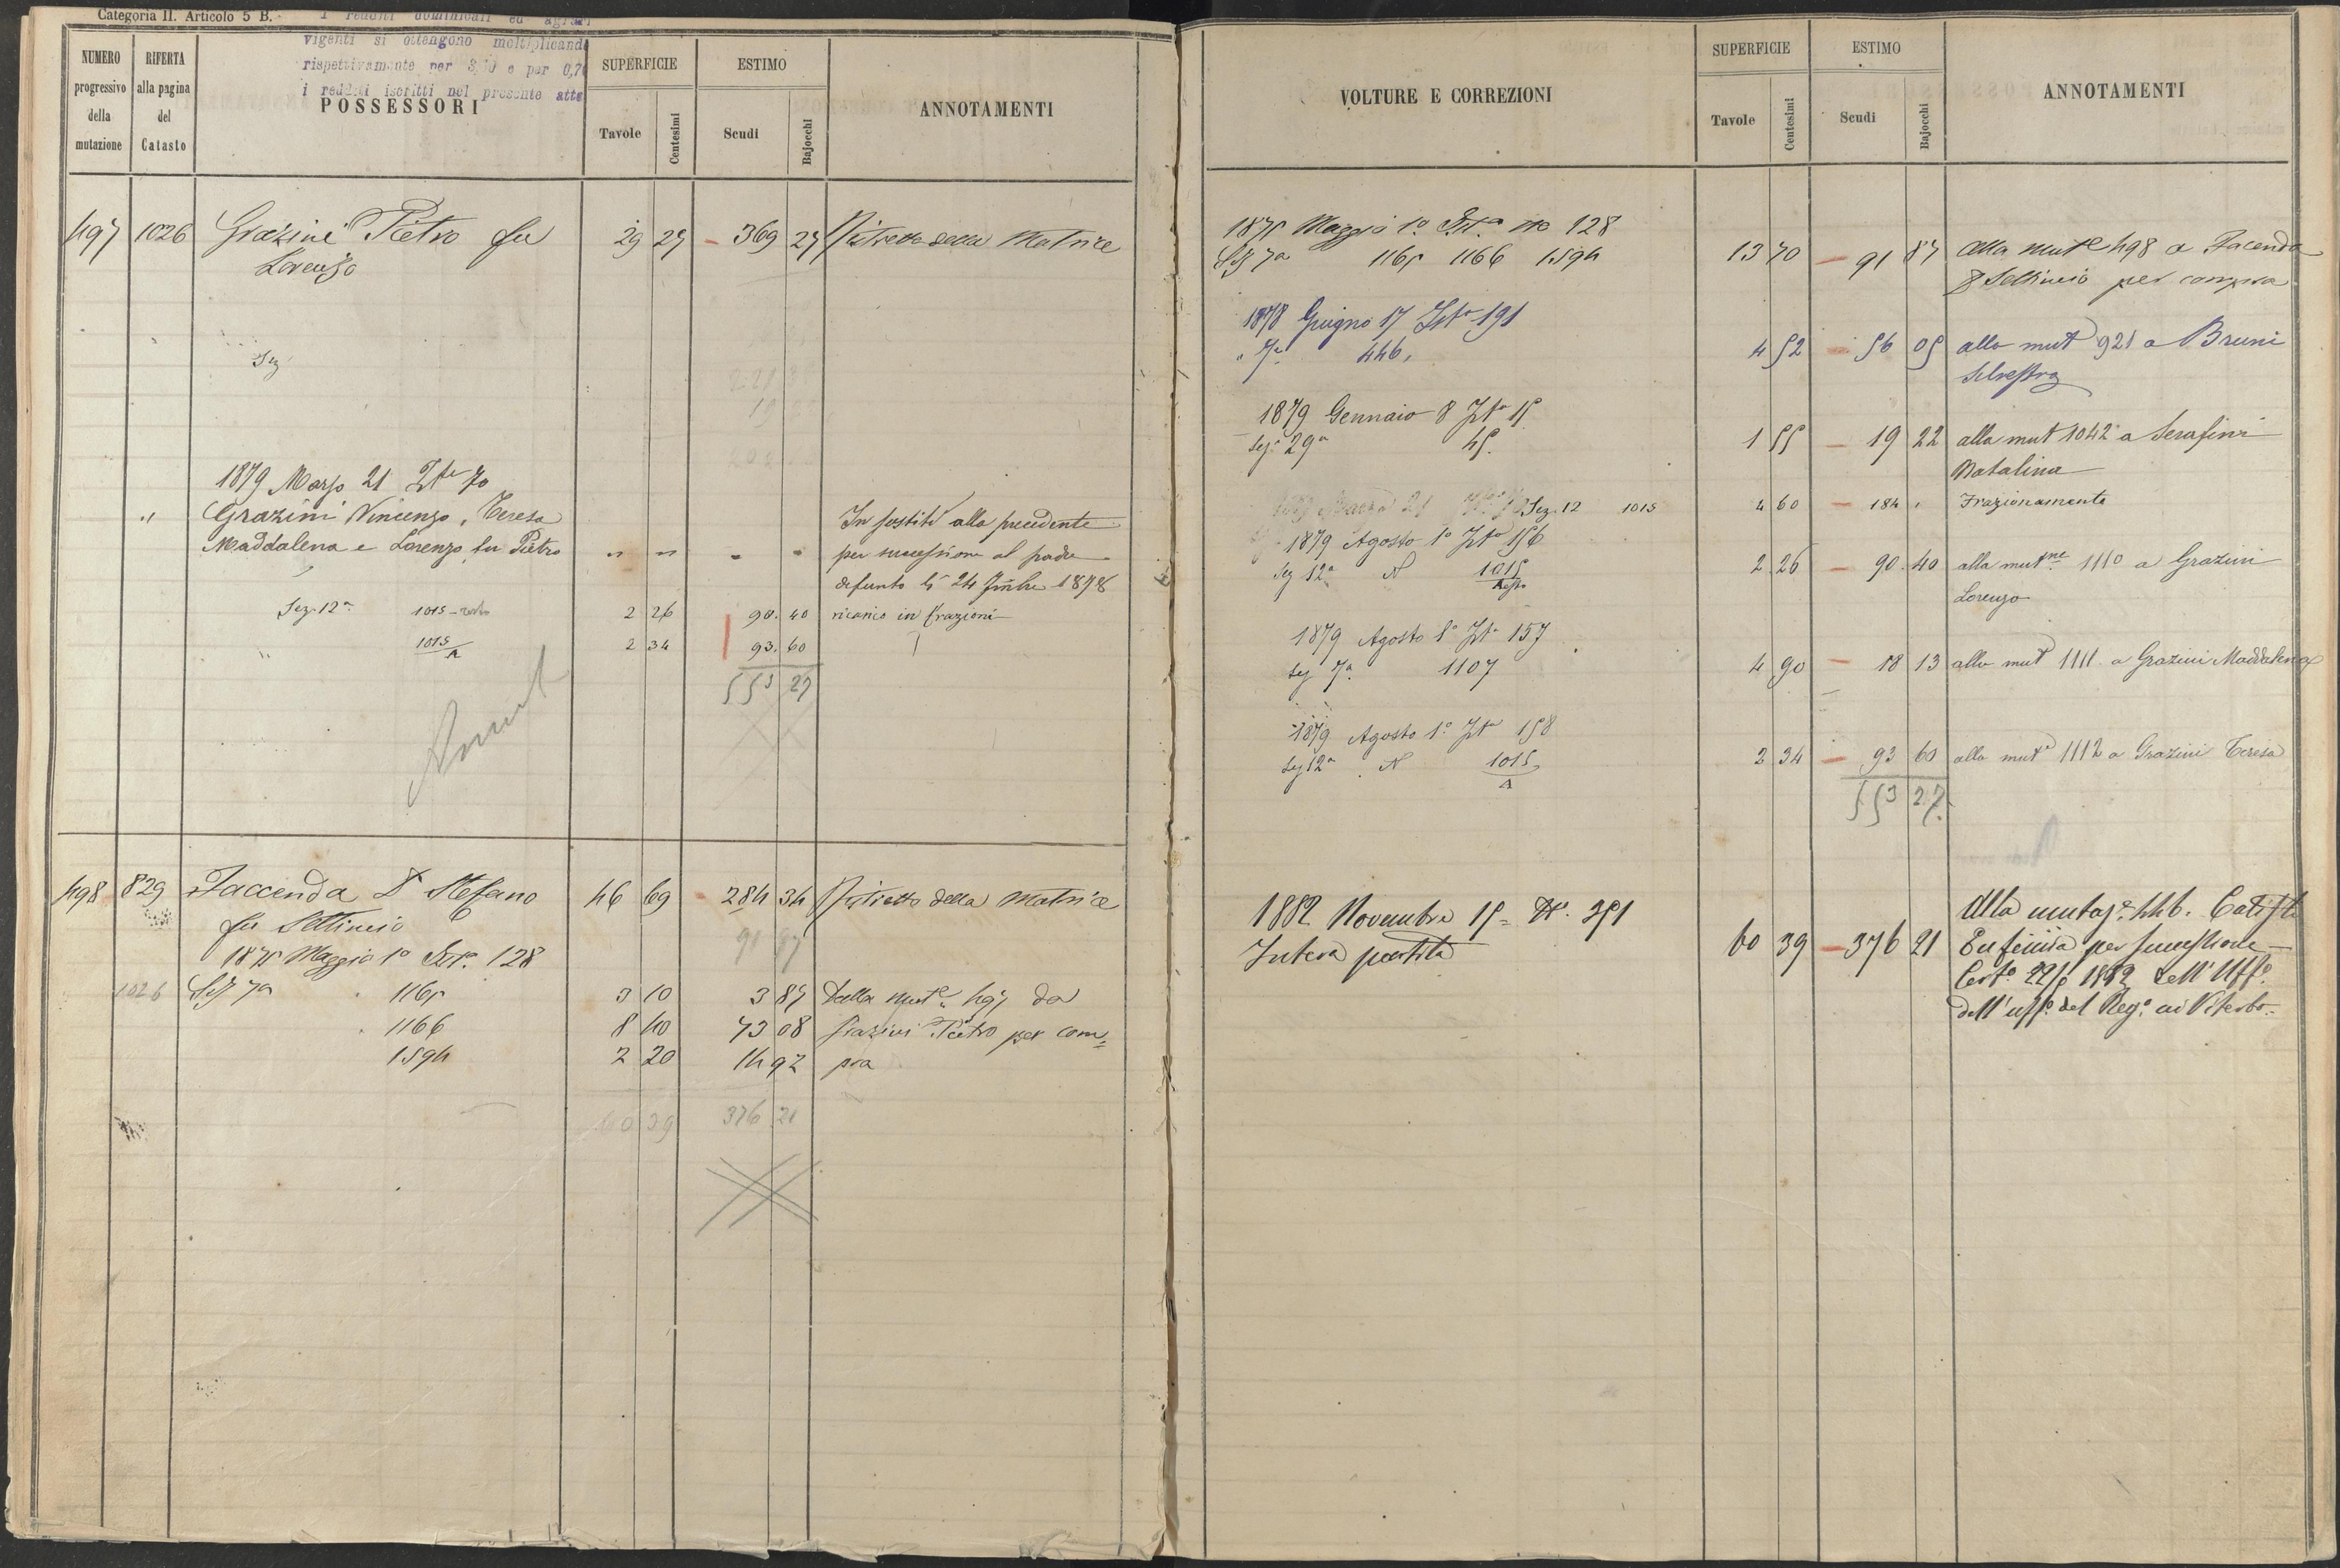 Categoria II. Articolo 5 B.
I redditi dominicali ed agrari
vigenti si ottengono moltiplicando
rispettivamente per 3,10 e per 0,70
i redditi iscritti nel presente atto
NUMERO
progressivo
della
mutazione
RIFERTA
alla pagina
del
Catasto
POSSESSORI
SUPERFICIE
Tavole
Centesimi
ESTIMO
Scudi
Bajocchi
ANNOTAMENTI
497 1026 Grazini Pietro fu 29 27 369 27 Ristretto della Matrice
Lorenzo
Sez
1879 Marzo 21
" Grazini Vincenzo, Teresa In sostit alla precedente
Maddalena e Lorenzo fu Pietro " " " " per successione al padre
defunto li 24 1878
Sez. 12a 1015 resto 2 26 90.40 in frazioni
1015/A 2 34 93.60
553 27
498 829 Faccenda D Stefano 46 69 284 34 Ristretto della Matrice
fu Settimio 91 87
1875 Maggio 1o 128
1026 Sez 7a 1165 3 10 3 87 Dalla mute 497 da
1166 8 40 73 08 Grazini Pietro per com=
1594 2 20 14 92 pra
60 39 376 21
VOLTURE E CORREZIONI
SUPERFICIE
Tavole
Centesimi
ESTIMO
Scudi
Bajocchi
ANNOTAMENTI
1875 Maggio 1o no 128
Sez 7a 1165 1166 1594 13 70 91 87 alla mute 498 a Facenda
Settimio per compra
1878 Giugno 17 Ista 191
" 7a 446. 4 52 56 05 alla mut 921 a Bruni
Silvestro
1879 Gennaio 8 Ista 15
Sez. 29a 45. 1 55 19 22 alla mut 1042 a Serafini
Natalina
1879 Marzo 21 Sez. 12 1015 4 60 184 " Frazionamento
1879 Agosto 1o Ista 156
Sez 12a N 1015/resto 2 26 90.40 alla mutne 1110 a Grazini
Lorenzo
1879 Agosto 1o Ista 157
Sez 7a 1107 4 90 18 13 alla mut 1111 a Grazini Maddalena
1879 Agosto 1o Ista 158
Sez 12a N 1015/A 2 34 93 60 alla muta 1112 a Grazini Teresa
553 27.
1882 Novembre 15 = No. 351
Intera partita 60 39 376 21
Alla mutaz.e 446.
Eufemia per successione
1882 dell'Uffo.
dell'uffo. del Rego. di Viterbo.